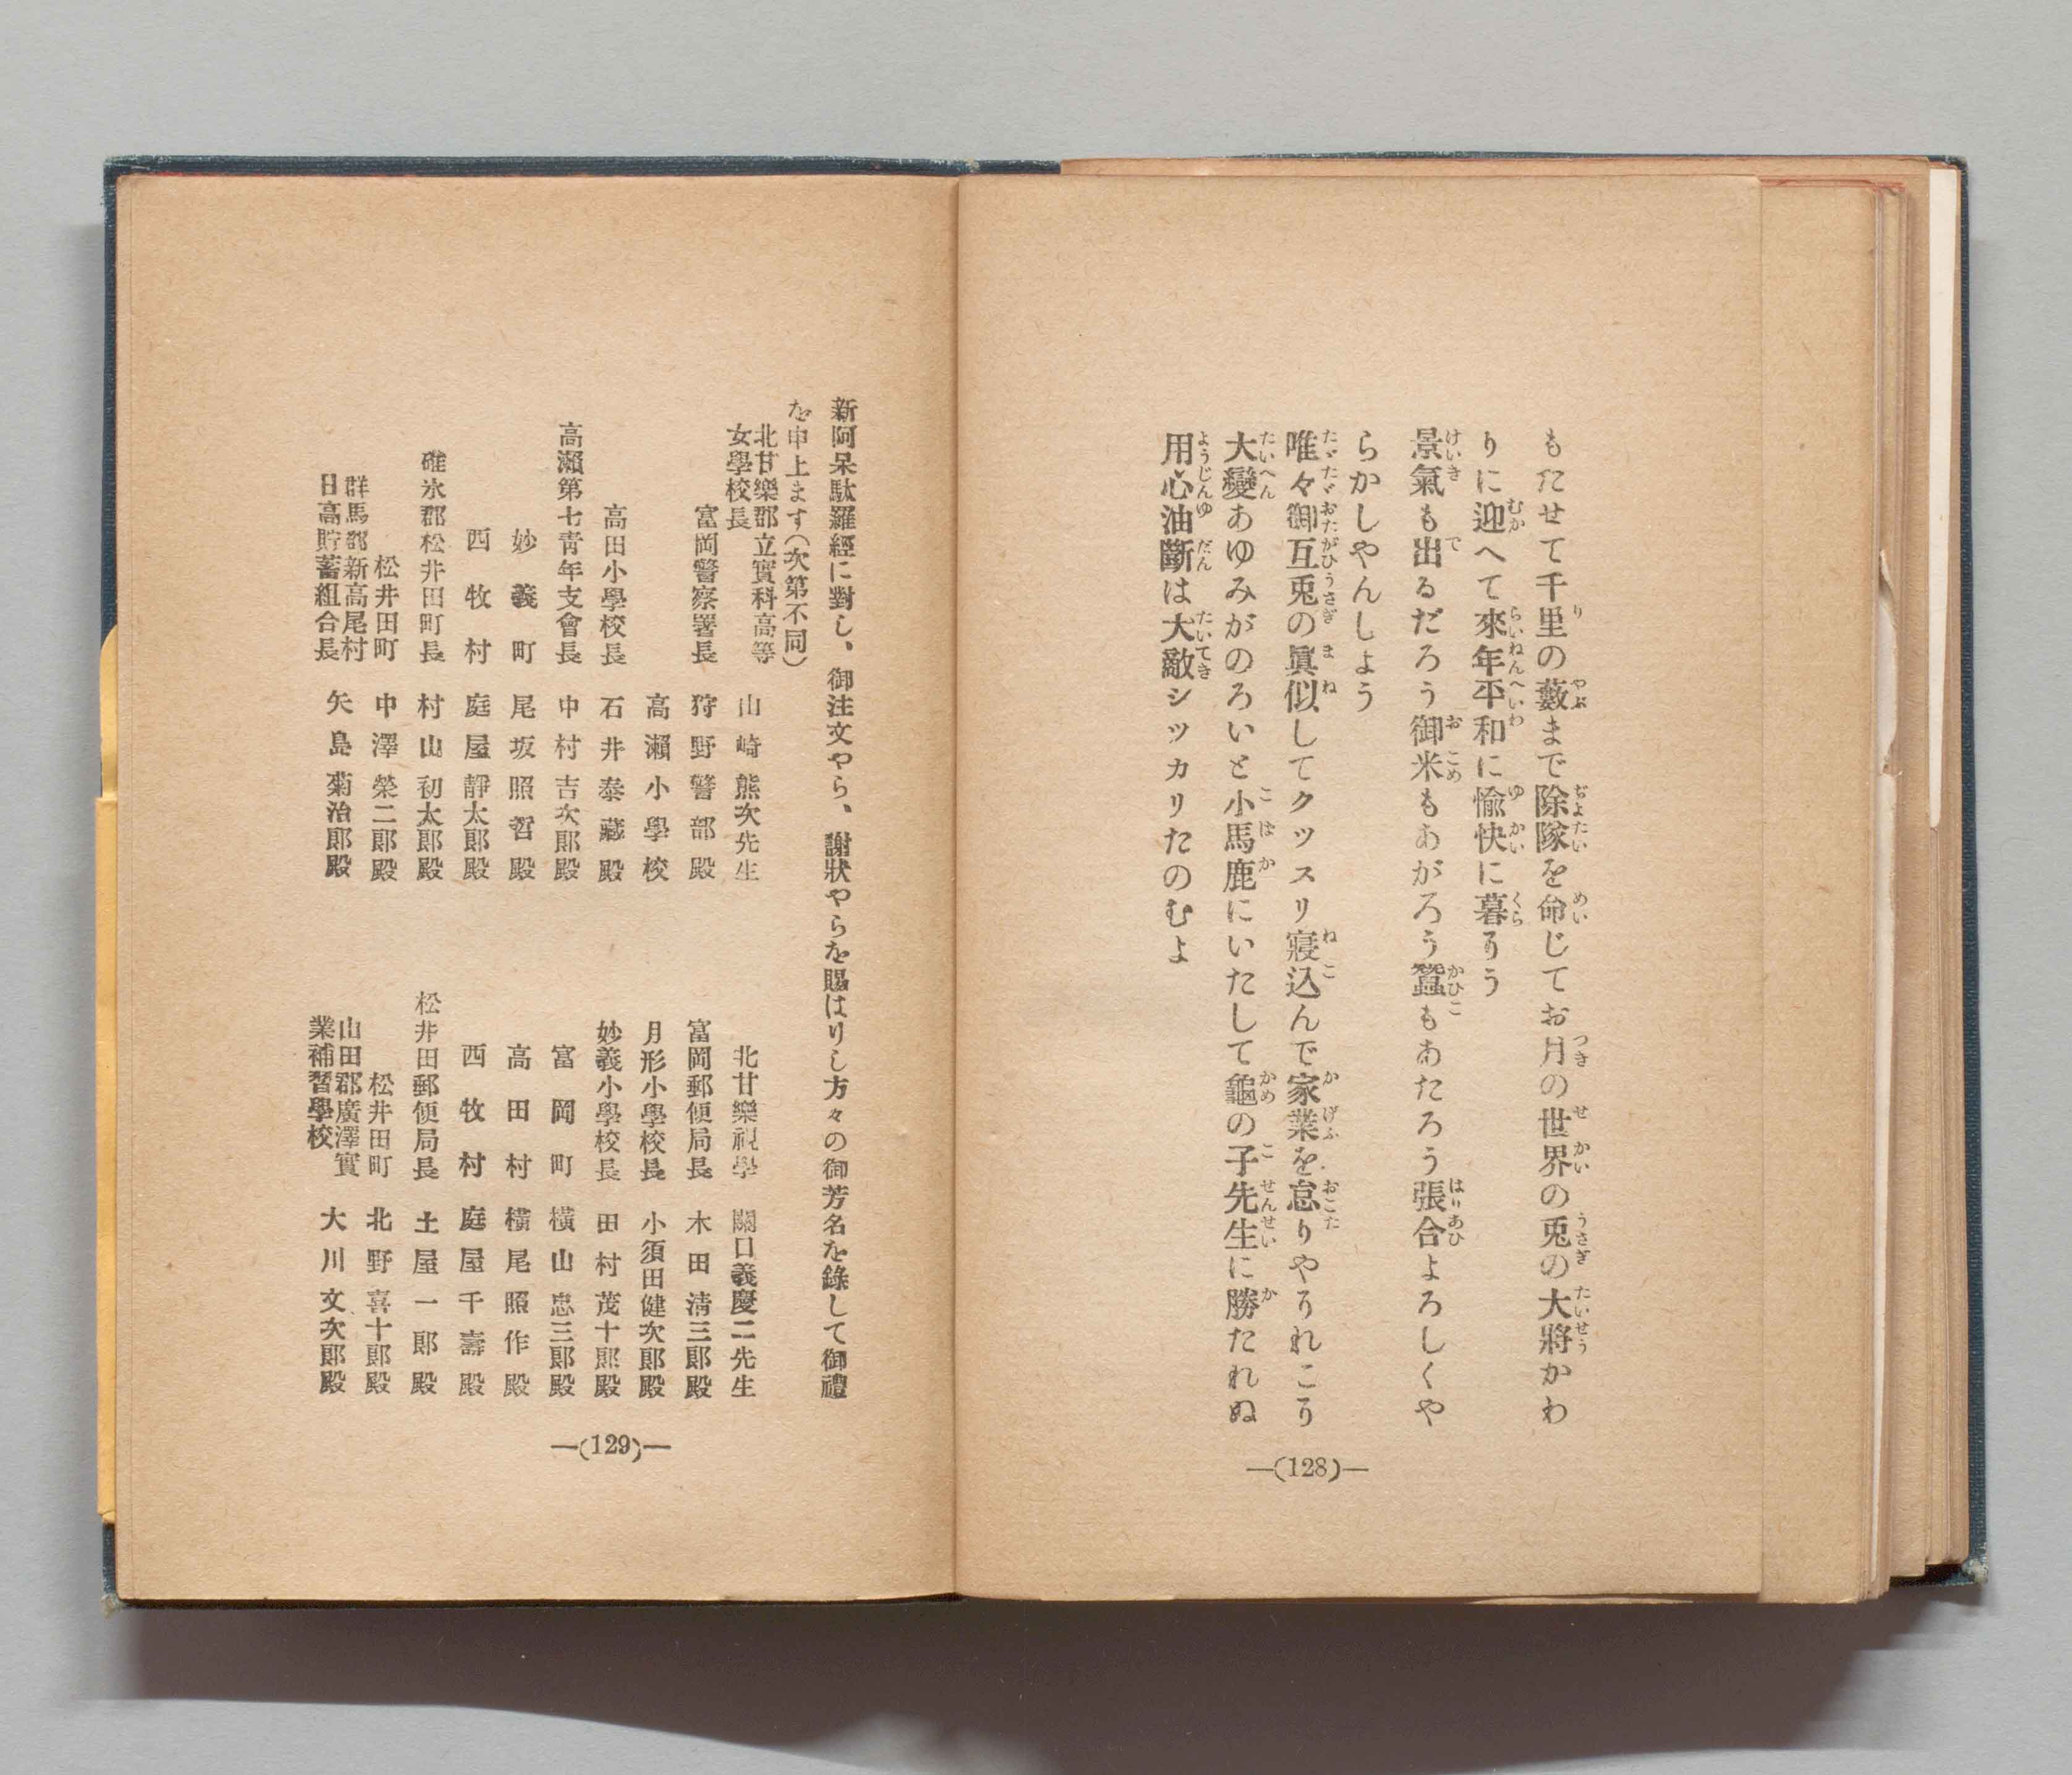 もたせて千里の藪まで除隊を命じてお月の世界の兎の大將かわ
りに迎へて來年平和に愉快に暮ろう
景氣も出るだろう御米もあがろう蠶もあたろう張合よろしくや
らかしやんしよう
唯々御互兎の眞似してクツスリ寢込んで家業を怠りやろれこり
大變あゆみがのろいと小馬鹿にいたして龜の子先生に勝たれぬ
用心油斷は大敵シツカリたのむよ
―(128)―
新阿呆駄羅經に對し、御注文やら、謝狀やらを賜はりし方々の御芳名を錄して御禮
を申上ます(次第不同)
北甘樂郡立實科高等女學校長 山崎熊次先生
富岡警察署長 狩野警部殿
高瀨小學校
高田小學校長 石井泰藏殿
高瀨第七靑年支會長 中村吉次郎殿
妙義町 尾坂照哲殿
西牧村 庭屋靜太郎殿
碓氷郡松井田町長 村山初太郎殿
松井田町 中澤榮二郎殿
群馬郡新高尾村日高貯蓄組合長 矢島菊治郎殿
北甘樂視學 關口義慶二先生
富岡郵便局長 木田淸三郎殿
月形小學校長 小須田健次郎殿
妙義小學校長 田村茂十郎殿
富岡町 橫山忠三郎殿
高田村 橫尾照作殿
西牧村 庭屋千壽殿
松井田郵便局長 土屋一郎殿
松井田町 北野喜十郎殿
山田郡廣澤實業補習學校 大川文次郎殿
―(129)―